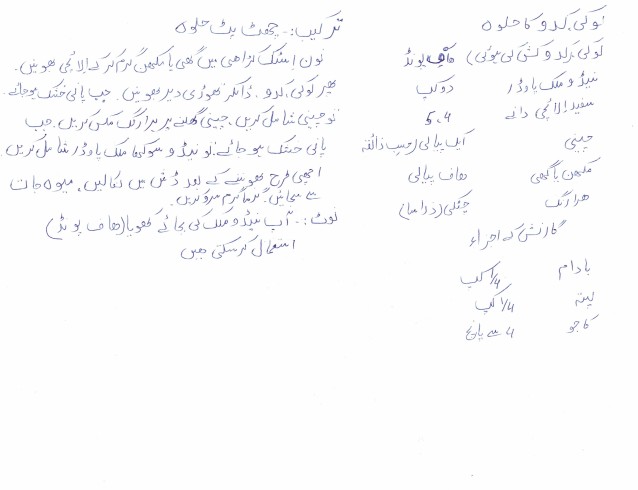 لوکی/کدو کا حلوہ
لوکی/کدو (کش کی ہوئی) ہاف پونڈ
نیڈو ملک پاوڈر دو کپ
سفید الائچی دانے 5،4
چینی ایک پیالی (حسب ذائقہ
مکھن یا گھی ہاف پیالی
ہرا رنگ چٹکی (ذرا سا)
گارنش کے اجزاء
بادام 1/4 کپ
پستہ 1/4 کپ
کاجو 4 سے پانچ
ترکیب:۔ جھٹ پٹ حلوہ
نون اسٹک کڑاھی میں گھی یا مکھن گرم کر کے الائچی بھونیں۔
پھر لوکی/کدو ڈالکر تھوڑی دیر بھونیں۔ جب پانی خشک ہو جائے
تو چینی شامل کریں، چینی گھلنے پر ہرا رنگ مکس کریں۔ جب
پانی خشک ہو جائے تو نیڈو سوکھا ملک پاوڈر شامل کریں
اچھی طرح بھوننے کے بعد ڈش میں نکالیں، میوہ جات
سے سجائیں۔ گرما گرم سرو کریں۔
نوٹ:۔ آپ نیڈو ملک کی بجائے کھویا (ھاف پونڈ)
استعمال کر سکتی ہیں